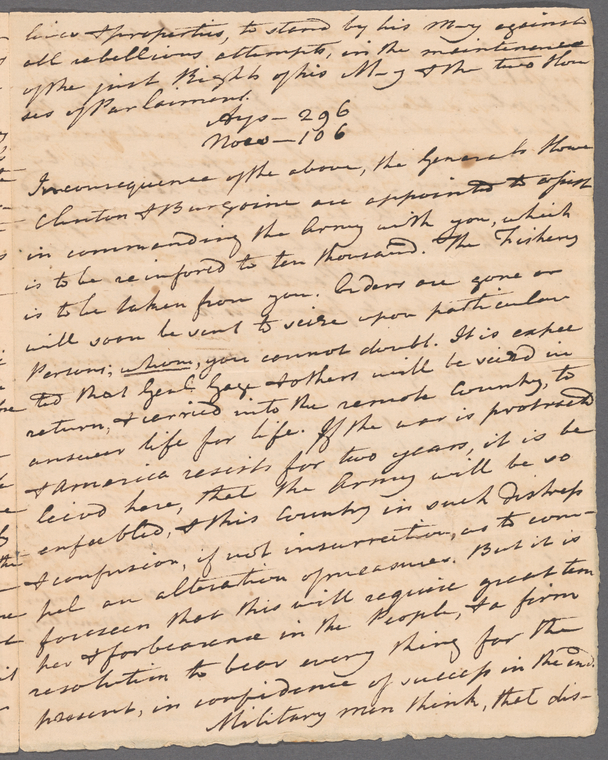 lives & properties, to stand by his May against
all rebellious attempts, in the maintenance
of the just Rights of his May & the two Hou
ses of Parliament.
Ays - 296
Noes - 106
In consequence of the above, the Generals Howe
Clinton & Burgoine are appointed to assist
in commanding the Army with you, which
is to be reinforced to ten thousand. The Fishery
is to be taken from you. Orders are gone or
will soon be sent to seize upon particular
Persons; whom, you cannot doubt. It is expec
ted that Genl. Gage & others will be seizd in
return, & carried into the remote Country, to
answer life for life. If the war is protracted
& America resists for two years, it is be
leived here, that the Army will be so
enfeebled, & this Country in such Distress
& confusion, if not insurrection, as to com-
pel an alteration of measures. But it is
foreseen that this will require great tem
per & forbearance in the People, & a firm
resolution to bear every thing for the
present, in confidence of success in the end.
Military men think, that dis-